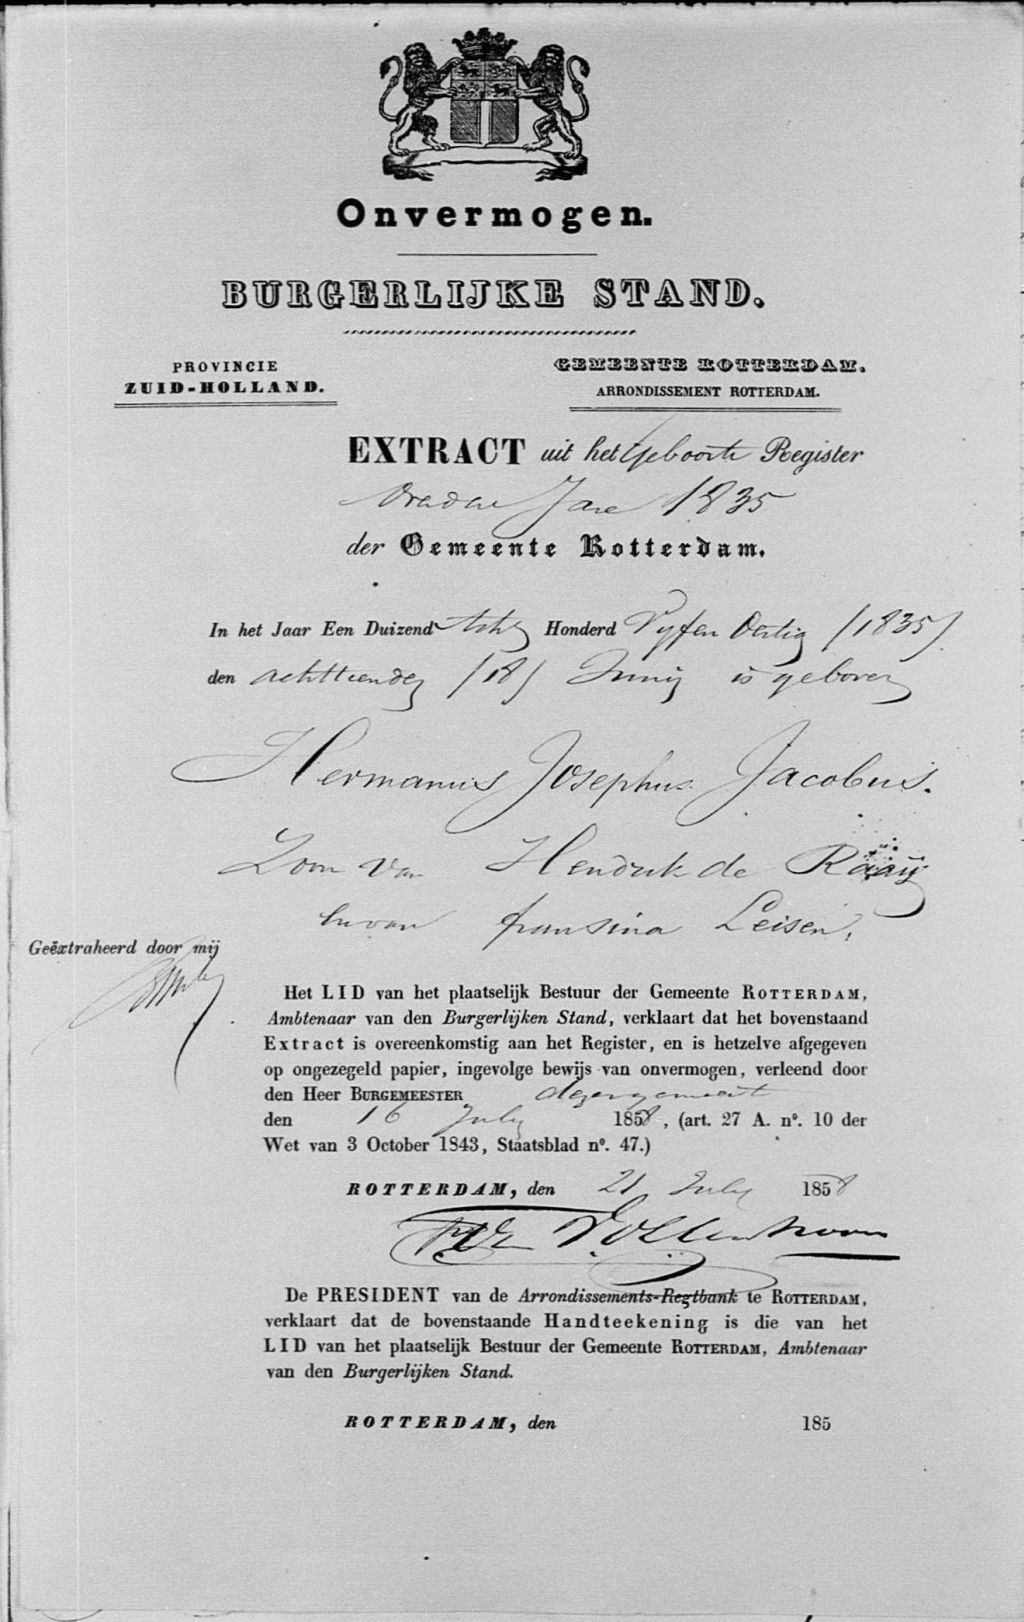 Onvermogen.
BURGERLIJKE STAND.
PROVINCIE
ZUID-HOLLAND.
GEMEENTE ROTTERDAM.
ARRONDISSEMENT ROTTERDAM.
EXTRACT uit het Geboorte Register
Jare 1835
der Gemeente Rotterdam.
In het Jaar Een Duizend Acht Honderd Vyf en Dertig (1835)
den achttienden (18) Junij is geboren
Hermanus Josephus Jacobus.
Zoon van Hendrik de Raaij
en van fransina Leisen,
Geëxtraheerd door mij
Het LID van het plaatselijk Bestuur der Gemeente ROTTERDAM,
Ambtenaar van den Burgerlijken Stand, verklaart dat het bovenstaand
Extract is overeenkomstig aan het Register, en is hetzelve afgegeven
op ongezegeld papier, ingevolge bewijs van onvermogen, verleend door
den Heer BURGEMEESTER dezer gemeente
den 16 July 1858, (art. 27 A. nº. 10 der
Wet van 3 October 1843, Staatsblad nº. 47.)
ROTTERDAM, den 21 July 1858
De PRESIDENT van de Arrondissements-Regtbank te ROTTERDAM,
verklaart dat de bovenstaande Handteekening is die van het
LID van het plaatselijk Bestuur der Gemeente ROTTERDAM, Ambtenaar
van den Burgerlijken Stand.
ROTTERDAM, den 185